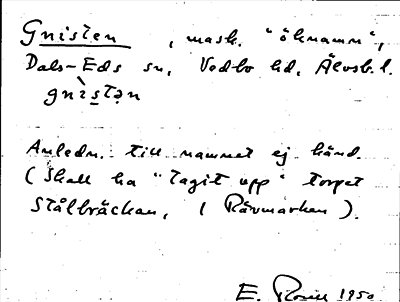 Gnisten, mask. "öknamn",
Dals-Eds sn, Vedbo hd, Älvsb. l.
gnìstən
Anledn. till namnet ej känd.
(Skall ha "tagit upp" torpet
Stålbräckan, i Rävmarken).
E. Rosell 1950